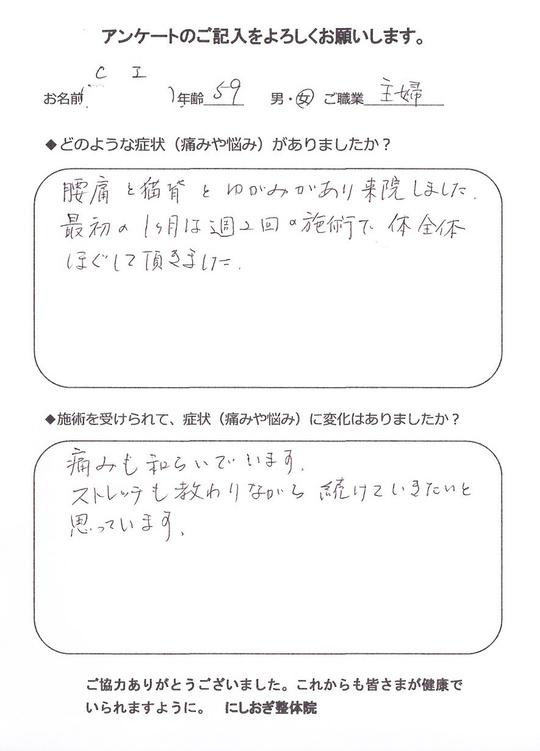 アンケートのご記入をよろしくお願いします。
お名前( C I )年齢 59 男・女 ご職業 主婦
◆どのような症状（痛みや悩み）がありましたか？
腰痛と猫背とゆがみがあり来院しました。
最初の1ヶ月は週2回の施術で体全体
ほぐして頂きました。
◆施術を受けられて、症状（痛みや悩み）に変化はありましたか？
痛みも和らいでいます。
ストレッチも教わりながら続けていきたいと
思っています。
ご協力ありがとうございました。これからも皆さまが健康で
いられますように。 にしおぎ整体院